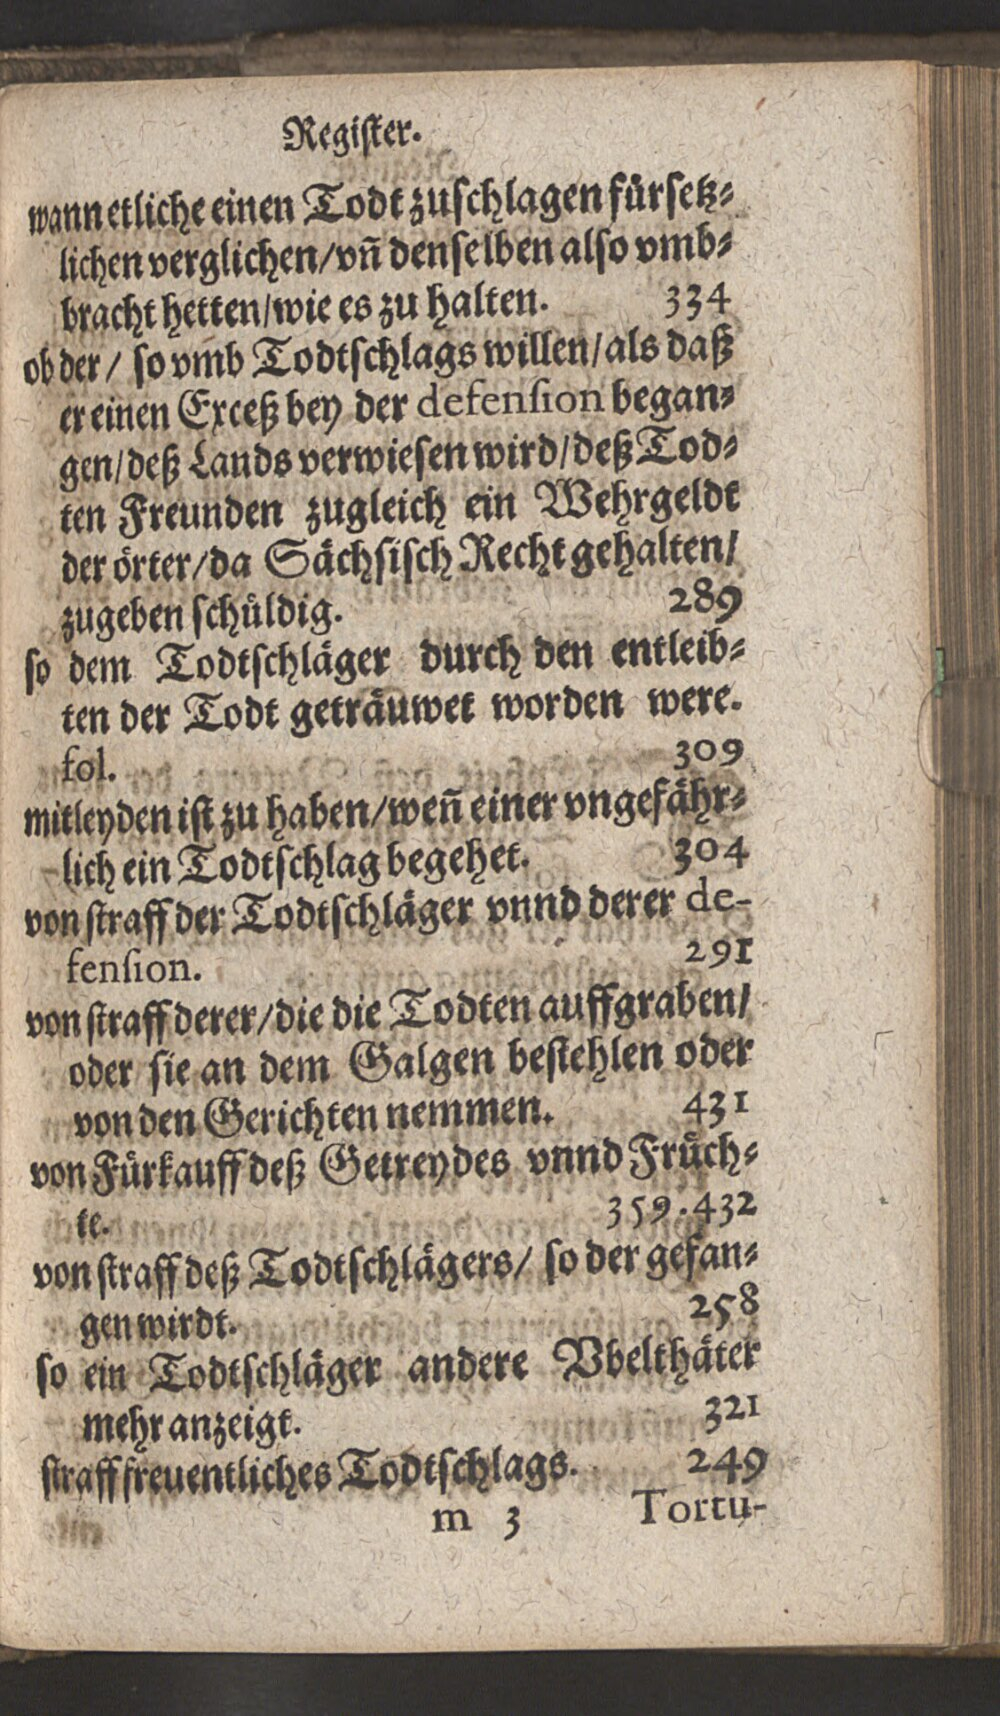 Register.
wann etliche einen Todt zuschlagen fürsetz-
lichen verglichen/vñ denselben also vmb-
bracht hetten/wie es zu halten. 334
ob der/ so vmb Todtschlags willen/als daß
er einen Exceß bey der defension began-
gen/deß Lands verwiesen wird/deß Tod-
ten Freunden zugleich ein Wehrgeldt
der örter/da Sächsisch Recht gehalten/
zugeben schüldig. 289
so dem Todtschläger durch den entleib-
ten der Todt geträuwet worden were.
fol. 309
mitleyden ist zu haben/weñ einer vngefähr-
lich ein Todtschlag begehet. 304
von straff der Todtschläger vnnd derer de-
fension. 291
von straff derer/die die Todten auffgraben/
oder sie an dem Galgen bestehlen oder
von den Gerichten nemmen. 431
von Fürkauff deß Getreydes vnnd Früch-
te. 359.432
von straff deß Todtschlägers/ so der gefan-
gen wirdt. 258
so ein Todtschläger andere Vbelthäter
mehr anzeigt. 321
straff freuentliches Todtschlags. 249
m 3 Tortu-